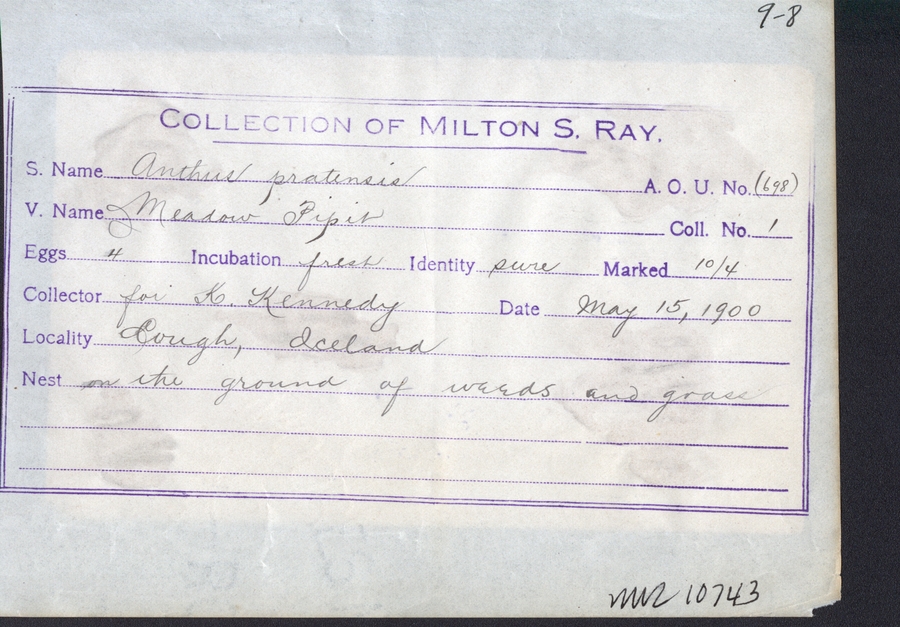 9-8
COLLECTION OF MILTON S. RAY.
S. Name Anthus pratensis A. O. U. No. (698)
V. Name Meadow Pipit Coll. No. 1
Eggs 4 Incubation fresh Identity sure Marked 10/4
Collector for K. Kennedy Date May 15, 1900
Locality Lough, Iceland
Nest on the ground of weeds and grass
MVZ 10743